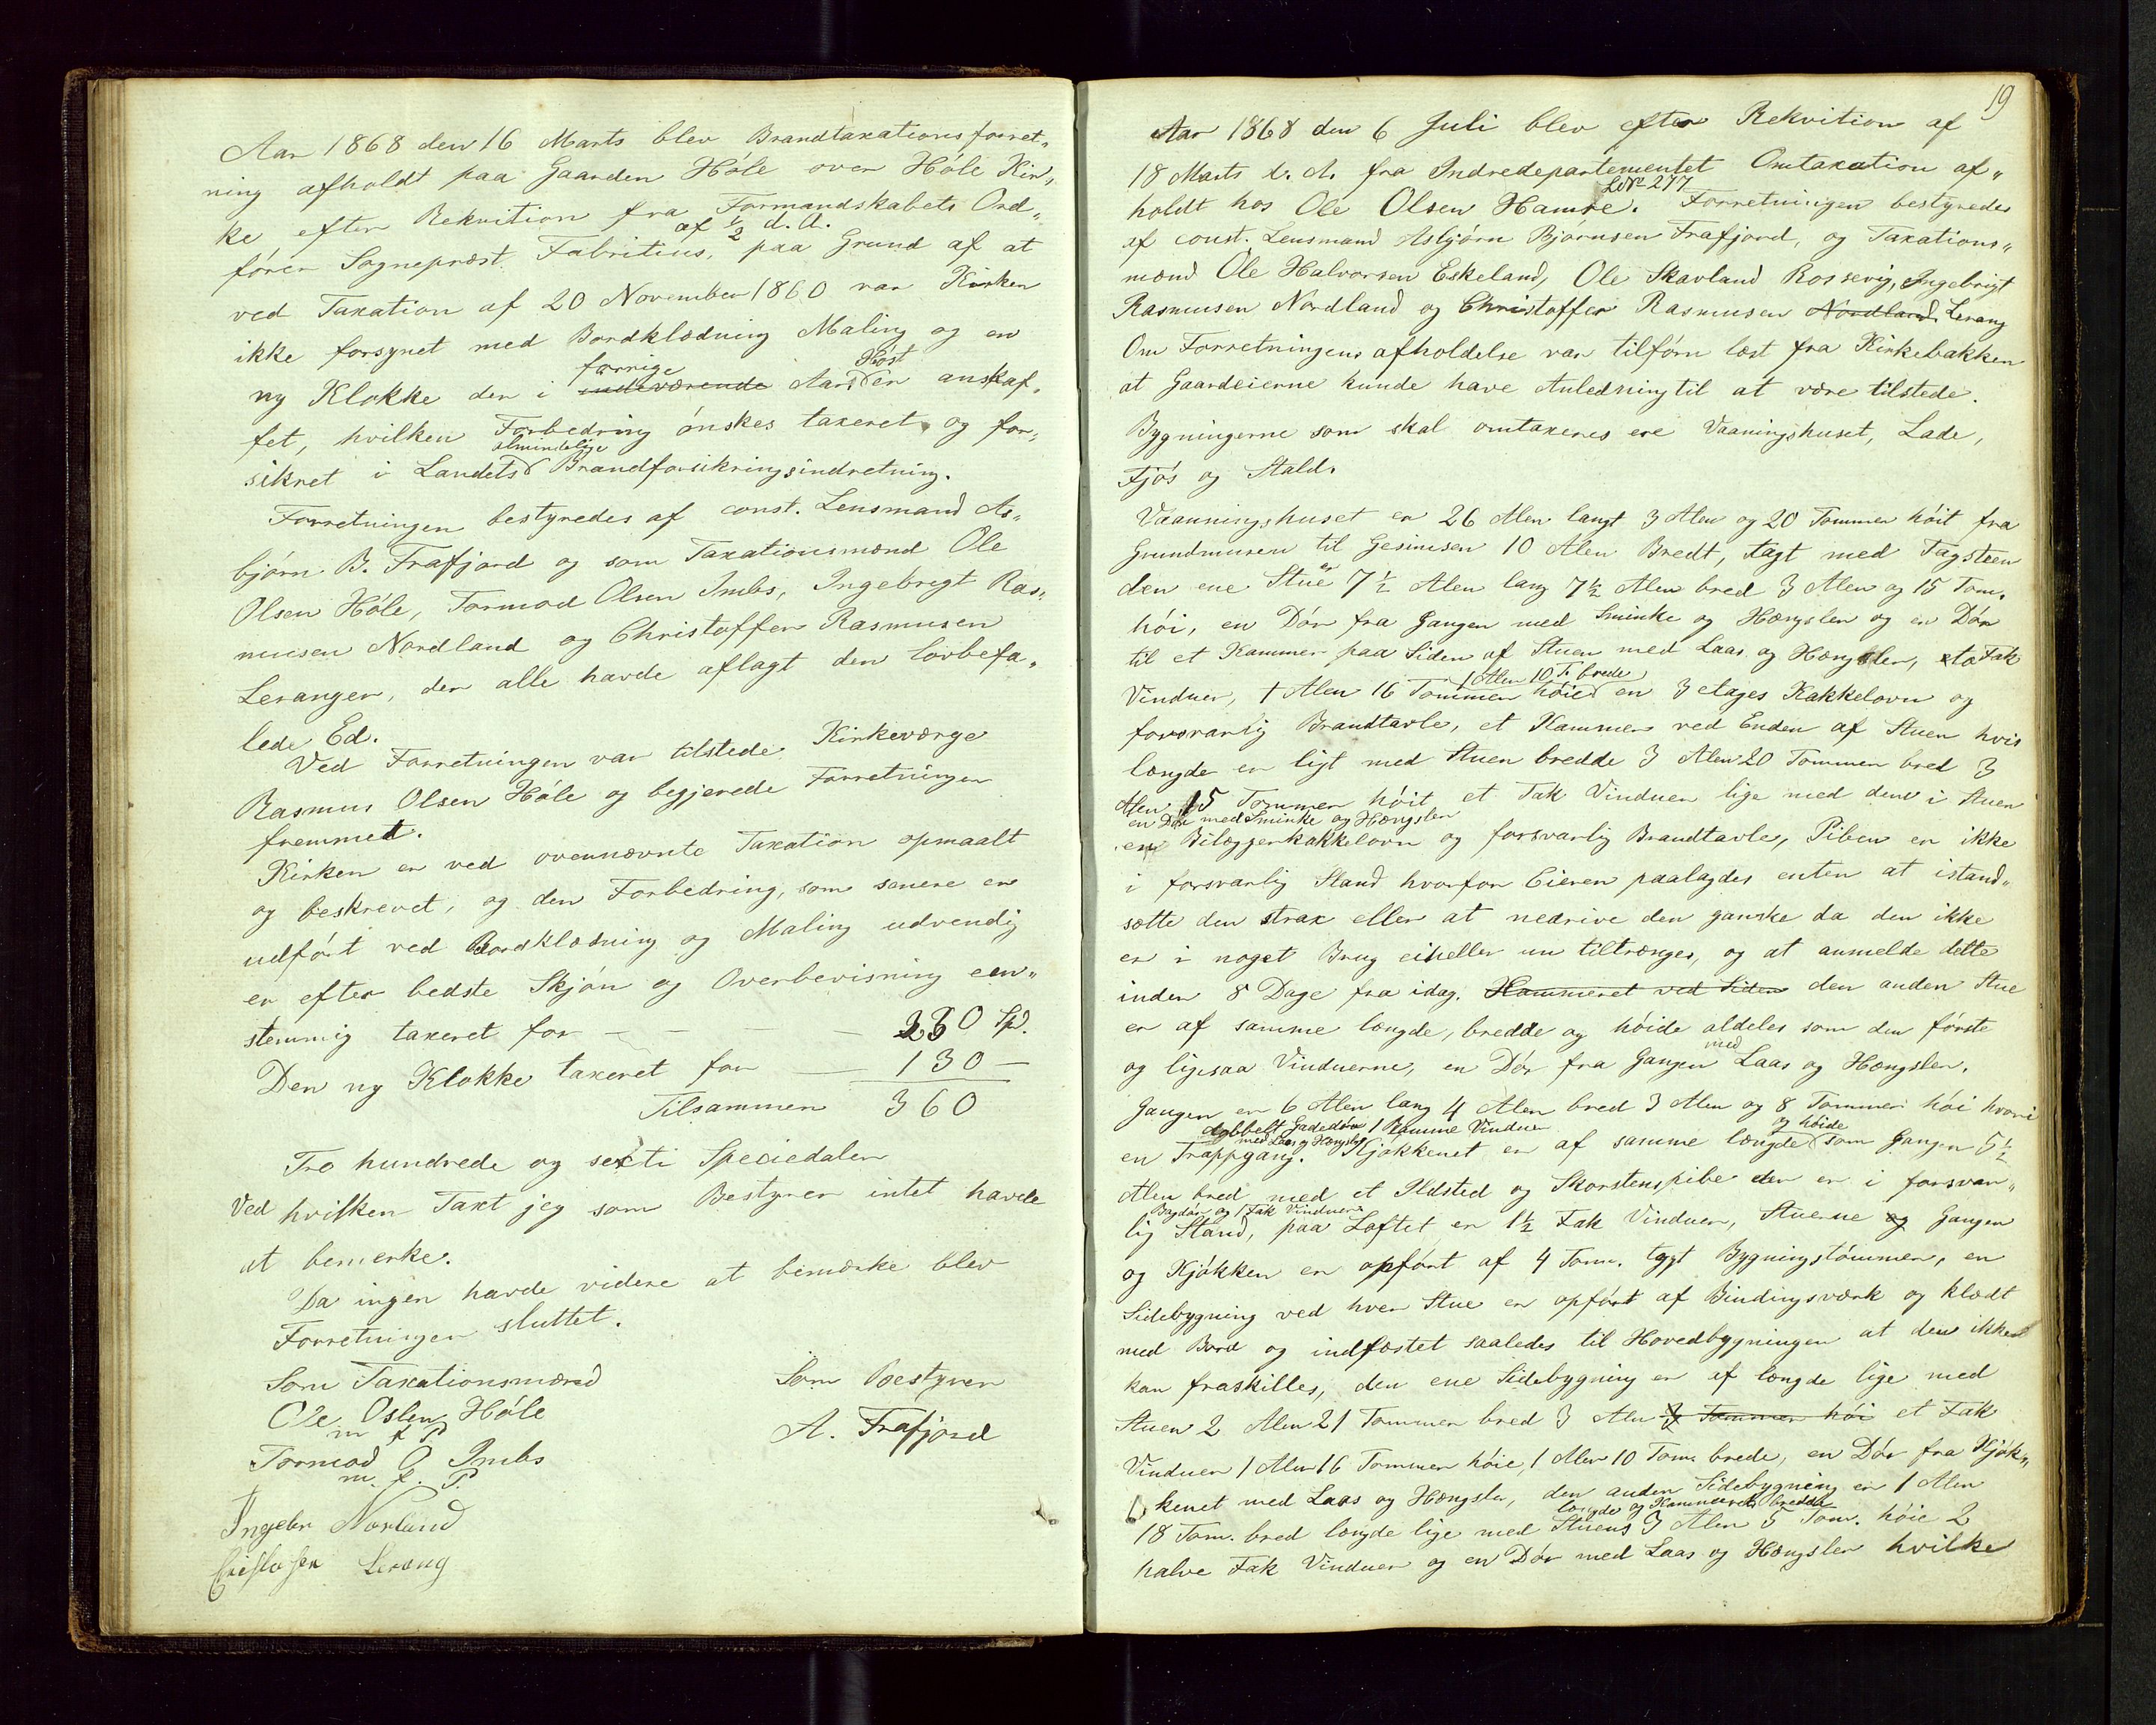 Aar 1868 den 16 Marts blev Brandtaxationsforret„
ning afholdt paa Gaarden Höle over Höle Kir„
ke efter Rekvition fra Formandskabets Ord„
af ½ d. A.
fører Sogneprest Fabritius, paa Grund af at
ved Taxation af 20 November 1860 var Kirken
ikke forsynet med Bordklædning Maling og en
forrige Höst
ny Klokke der i indeværende Aar er anskaf„
fet, hvilken Forbedring önskes taxeret og for„
almindelige
sikret i Landets Brandforsikringsindretning.
Forretningen bestyredes af const. Lensmand As„
bjørn B. Frafjord og som Taxationsmænd Ole
Olsen Höle, Tormod Olsen Imbs, Ingebrigt Ras„
musen Nordland og Christoffer Rasmusen
Leranger, der alle havde aflagt den lovbefa„
lede Ed.
Ved Forretningen var tilstede Kirkeværge
Rasmus Olsen Höle og begjerede Forretningen
fremmet.
Kirken er ved ovennævnte Taxation opmaalt
og beskrevet, og den Forbedring, som senere er
udfört ved Bordklædning og Maling udvendig
er efter bedste Skjön og Overbevisning een„
stemmig taxeret for — — — 230 Spd.
Den ny Klokke taxeret for — 130 —
Tilsammen 360
Tre hundrede og sexti Speciedaler
Ved hvilken Taxt jeg som Bestyrer intet havde
at bemerke.
Da ingen havde videre at bemærke blev
Forretningen sluttet.
Som Taxationsmænd Som Bestyrer
Ole Oslen Höle A. Frafjord
m f P.
Tormod O Imbs
m. f. P.
Ingebr Norland
Christofer Lerang
19
Aar 1868 den 6 Juli blev efter Rekvition af
18 Marts d. A. fra Indredepartementet Omtaxation af„
LNr 277
holdt hos Ole Olsen Hamre. Forretningen bestyredes
af const. Lensmand Asbjörn Bjørnsen Frafjord, og Taxations„
mænd Ole Halvorsen Eskeland, Ole Skavland Rossevig, Ingebrigt
Rasmusen Nordland og Christoffer Rasmusen Nordland Lerang
Om Forretningens afholdelse var tilförn læst fra Kirkebakken
at Gaardeierne kunde have Anledning til at være tilstede.
Bygningerne som skal omtaxeres ere Vaaningshuset, Lade,
Fjös og Stald.
Vaanningshuset er 26 Alen langt 3 Alen og 20 Tommer höit fra
Grundmuren til Gesimsen 10 Alen Bredt, tagt med Tagsteen
er
den ene Stue 7½ Alen lang 7½ Alen bred 3 Alen og 15 Tom.
höi, en Dör fra Gangen med Sminke og Hængsler og en Dör
til et Kammer paa Siden af Stuen med Laas og Hængsler, to Fak
1 Alen 10 T. brede
Vinduer, 1 Alen 16 Tommer höie en 3 etages Kakkelovn og
forsvarlig Brandtavle, et Kammer ved Enden af Stuen hvis
længde er ligt med Stuen bredde 3 Alen 20 Tommer bred 3
Alen 15 Tommer höit et Fak Vinduer lige med dem i Stuen
en Dör med Sminke og Hængsler
en Bilæggerkakkelovn og forsvarlig Brandtavle, Piben er ikke
i forsvarlig Stand hvorfor Eieren paalagdes enten at istand„
sætte den strax eller at nedrive den ganske da den ikke
er i noget Brug eiheller nu tiltrænges, og at anmelde dette
inden 8 Dage fra idag. Kammeret ved Siden den anden Stue
er af samme længde, bredde og höide aldeles som den förste
med
og ligesaa Vinduerne, en Dör fra Gangen Laas og Hængsler.
Gangen er 6 Alen lang 4 Alen bred 3 Alen og 8 Tommer höi hvori
dobbelt Gadedör 1 Ramme Vinduer og höide
med Laas og Hængsler
en Trappgang. Kjökkenet er af samme længde som Gangen 5½
Alen bred med et Ildsted og Skorstenspibe der er i forsvar„
Bagdör og 1 Fak Vinduer
lig Stand, paa Loftet er 1½ Fak Vinduer, Stuerne og Gangen
og Kjökken er opfört af 4 Tom. tygt Bygningstömmer, en
Sidebygning ved hver Stue er opfört af Bindingsværk og klædt
med Bord og indfæstet saaledes til Hovedbygningen at den ikke
kan fraskilles, den ene Sidebygning er af længde lige med
Stuen 2 Alen 21 Tommer bred 3 Alen 3 Tommer höi et Fak
Vinduer 1 Alen 16 Tommer höie, 1 Alen 10 Tom. brede, en Dör fra Kjök„
kenet med Laas og Hængsler, den anden Sidebygning er 1 Alen
længde og Kammerets bredde
18 Tom. bred længde lige med Stuens 3 Alen 5 Tom. höie 2
halve Fak Vinduer og en Dör med Laas og Hængsler hvilke